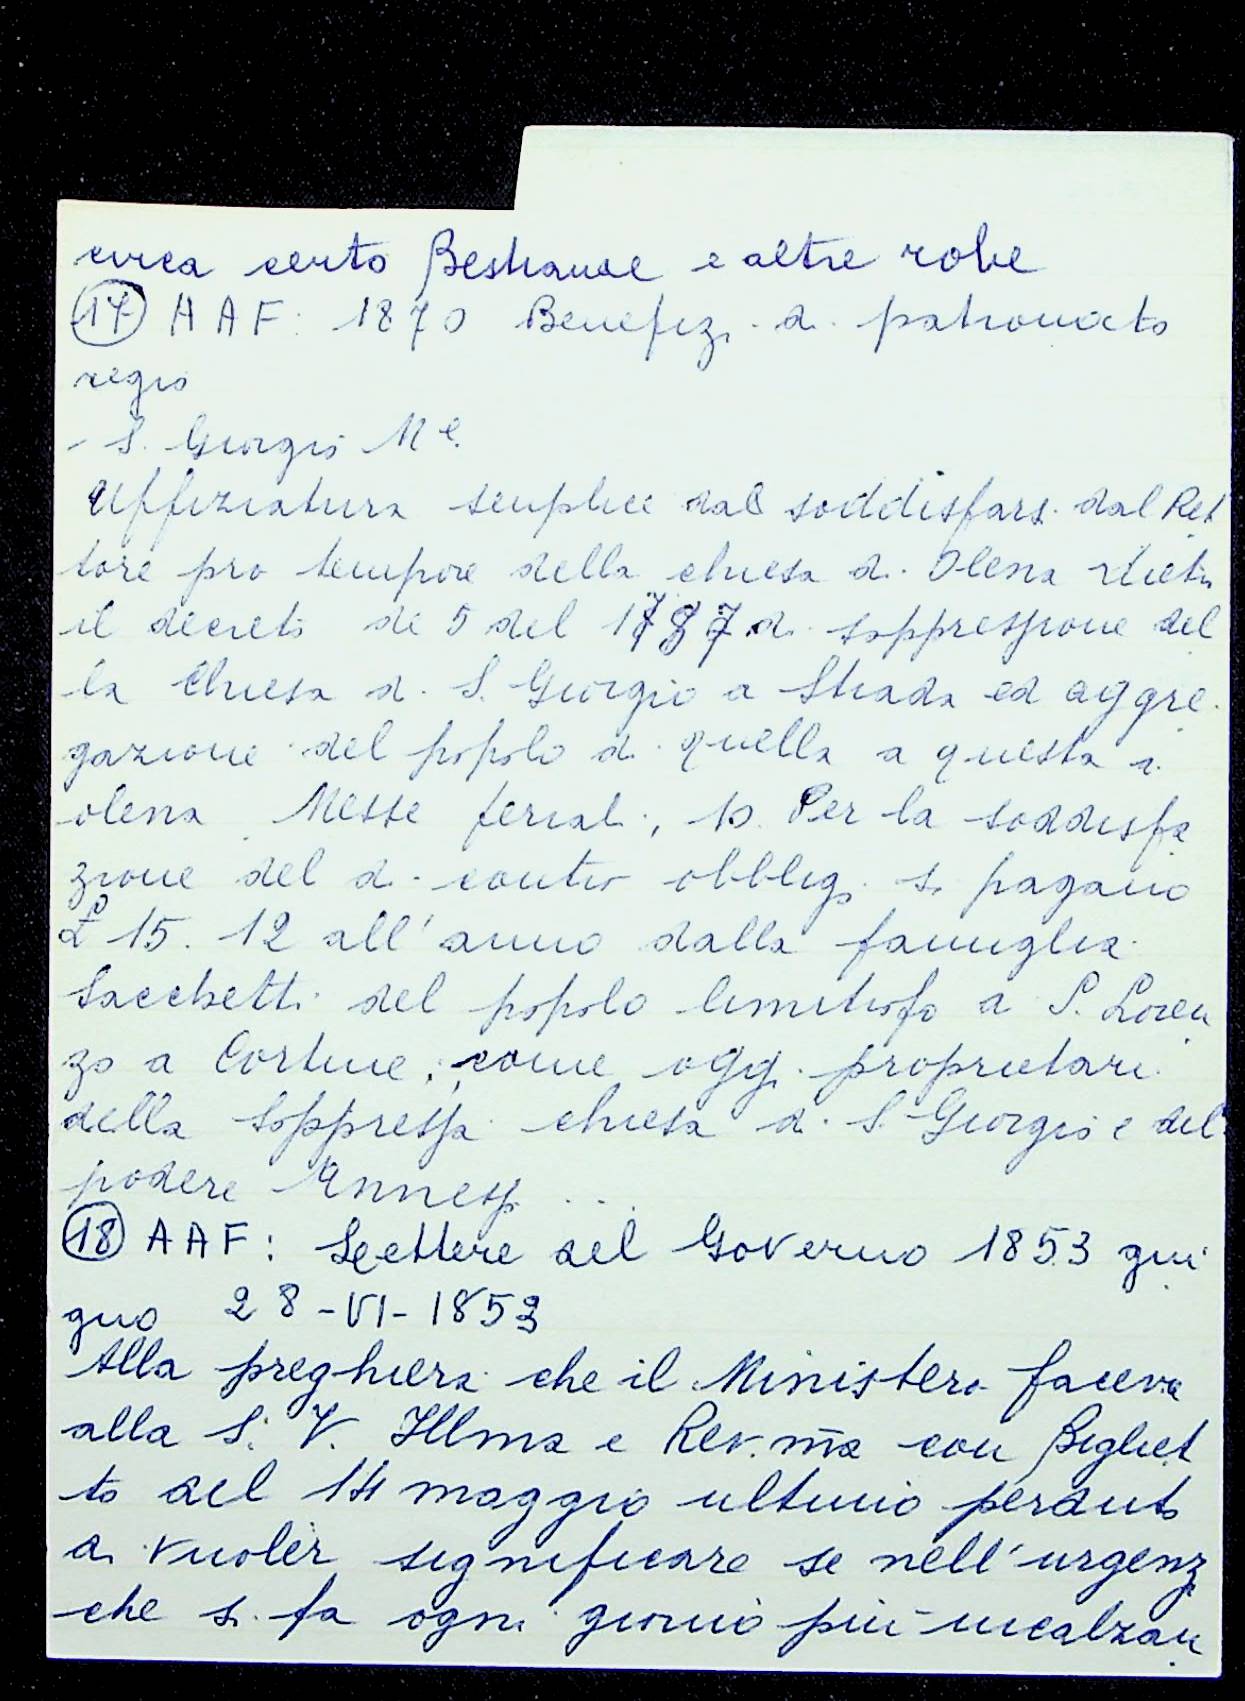 circa certo Bestiame e altre robe
17 AAF: 1870 Benefizi di patronato
regio
- S. Giorgio M e.
Uffiziatura semplice dal soddisfarsi dal Ret
tore pro tempore della chiesa di Olena
il decreto de 5 del 1787 di soppressione del
la Chiesa di S. Giorgio a Strada ed aggre.
gazione del popolo di quella a questa di
olena Messe feriali, 10. Per la soddisfa
zione del di contro obblig. si pagano
£ 15. 12 all'anno dalla famiglia
Sacchetti del popolo limitrofo a S. Loren
zo a Cortine, come oggi proprietari
della Soppressa chiesa di S. Giorgio e del
podere Annesso ...
18 AAF: Lettere del Governo 1853 giu
gno 28-VI-1853
Alla preghiera che il Ministero faceva
alla S. V. Illma e Rev.ma con Bigliet
to del 14 maggio ultimo perduto
di vuoler significare se nell'urgenz
che si fa ogni giorno più incalzan